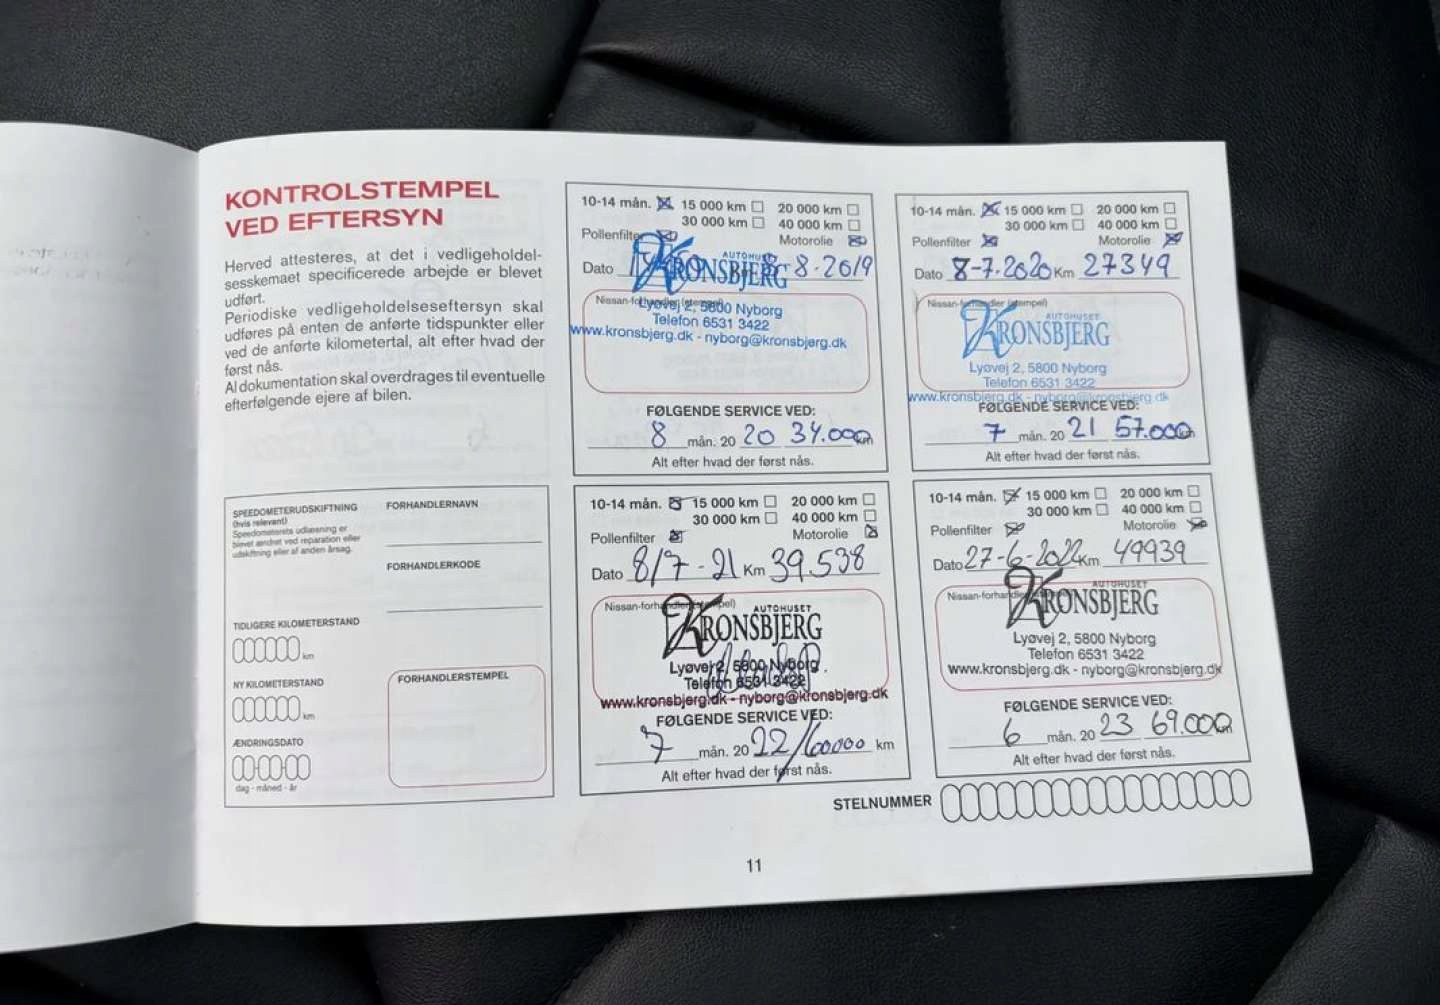 KONTROLSTEMPEL
VED EFTERSYN
Herved attesteres, at det i vedligeholdel-
sesskemaet specificerede arbejde er blevet
udført.
Periodiske vedligeholdelseseftersyn skal
udføres på enten de anførte tidspunkter eller
ved de anførte kilometertal, alt efter hvad der
først nås.
Al dokumentation skal overdrages til eventuelle
efterfølgende ejere af bilen.
SPEEDOMETERUDSKIFTNING
(hvis relevant)
Speedometerets udlæsning er
blevet ændret ved reparation eller
udskiftning eller af anden årsag.
FORHANDLERNAVN
FORHANDLERKODE
TIDLIGERE KILOMETERSTAND
km
NY KILOMETERSTAND
km
ÆNDRINGSDATO
dag - måned - år
FORHANDLERSTEMPEL
10-14 mån. 15 000 km 20 000 km
30 000 km 40 000 km
Pollenfilter Motorolie
Dato 8-8-2019
AUTOHUSET
KRONSBJERG
Nissan-forhandler (stempel)
Lyøvej 2, 5800 Nyborg
Telefon 6531 3422
www.kronsbjerg.dk - nyborg@kronsbjerg.dk
FØLGENDE SERVICE VED:
8 mån. 20 20 34.000 km
Alt efter hvad der først nås.
10-14 mån. 15 000 km 20 000 km
30 000 km 40 000 km
Pollenfilter Motorolie
Dato 8-7.2020 Km 27349
Nissan-forhandler (stempel)
AUTOHUSET
KRONSBJERG
Lyøvej 2, 5800 Nyborg
Telefon 6531 3422
www.kronsbjerg.dk - nyborg@kronsbjerg.dk
FØLGENDE SERVICE VED:
7 mån. 20 21 57.000 km
Alt efter hvad der først nås.
10-14 mån. 15 000 km 20 000 km
30 000 km 40 000 km
Pollenfilter Motorolie
Dato 8/7-21 Km 39.538
Nissan-forhandler (stempel)
AUTOHUSET
KRONSBJERG
Lyøvej 2, 5800 Nyborg
Telefon 6531 3422
www.kronsbjerg.dk - nyborg@kronsbjerg.dk
FØLGENDE SERVICE VED:
7 mån. 20 22/60000 km
Alt efter hvad der først nås.
10-14 mån. 15 000 km 20 000 km
30 000 km 40 000 km
Pollenfilter Motorolie
Dato 27-6-2022 Km 49939
AUTOHUSET
Nissan-forhandler (stempel)
KRONSBJERG
Lyøvej 2, 5800 Nyborg
Telefon 6531 3422
www.kronsbjerg.dk - nyborg@kronsbjerg.dk
FØLGENDE SERVICE VED:
6 mån. 20 23 69.000 km
Alt efter hvad der først nås.
STELNUMMER
11